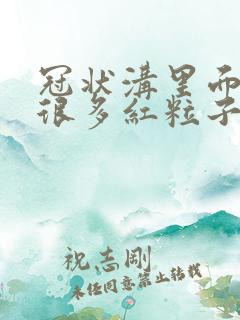 冠状溝里面
很多紅粒子
祝志剛
未经同意禁止转载